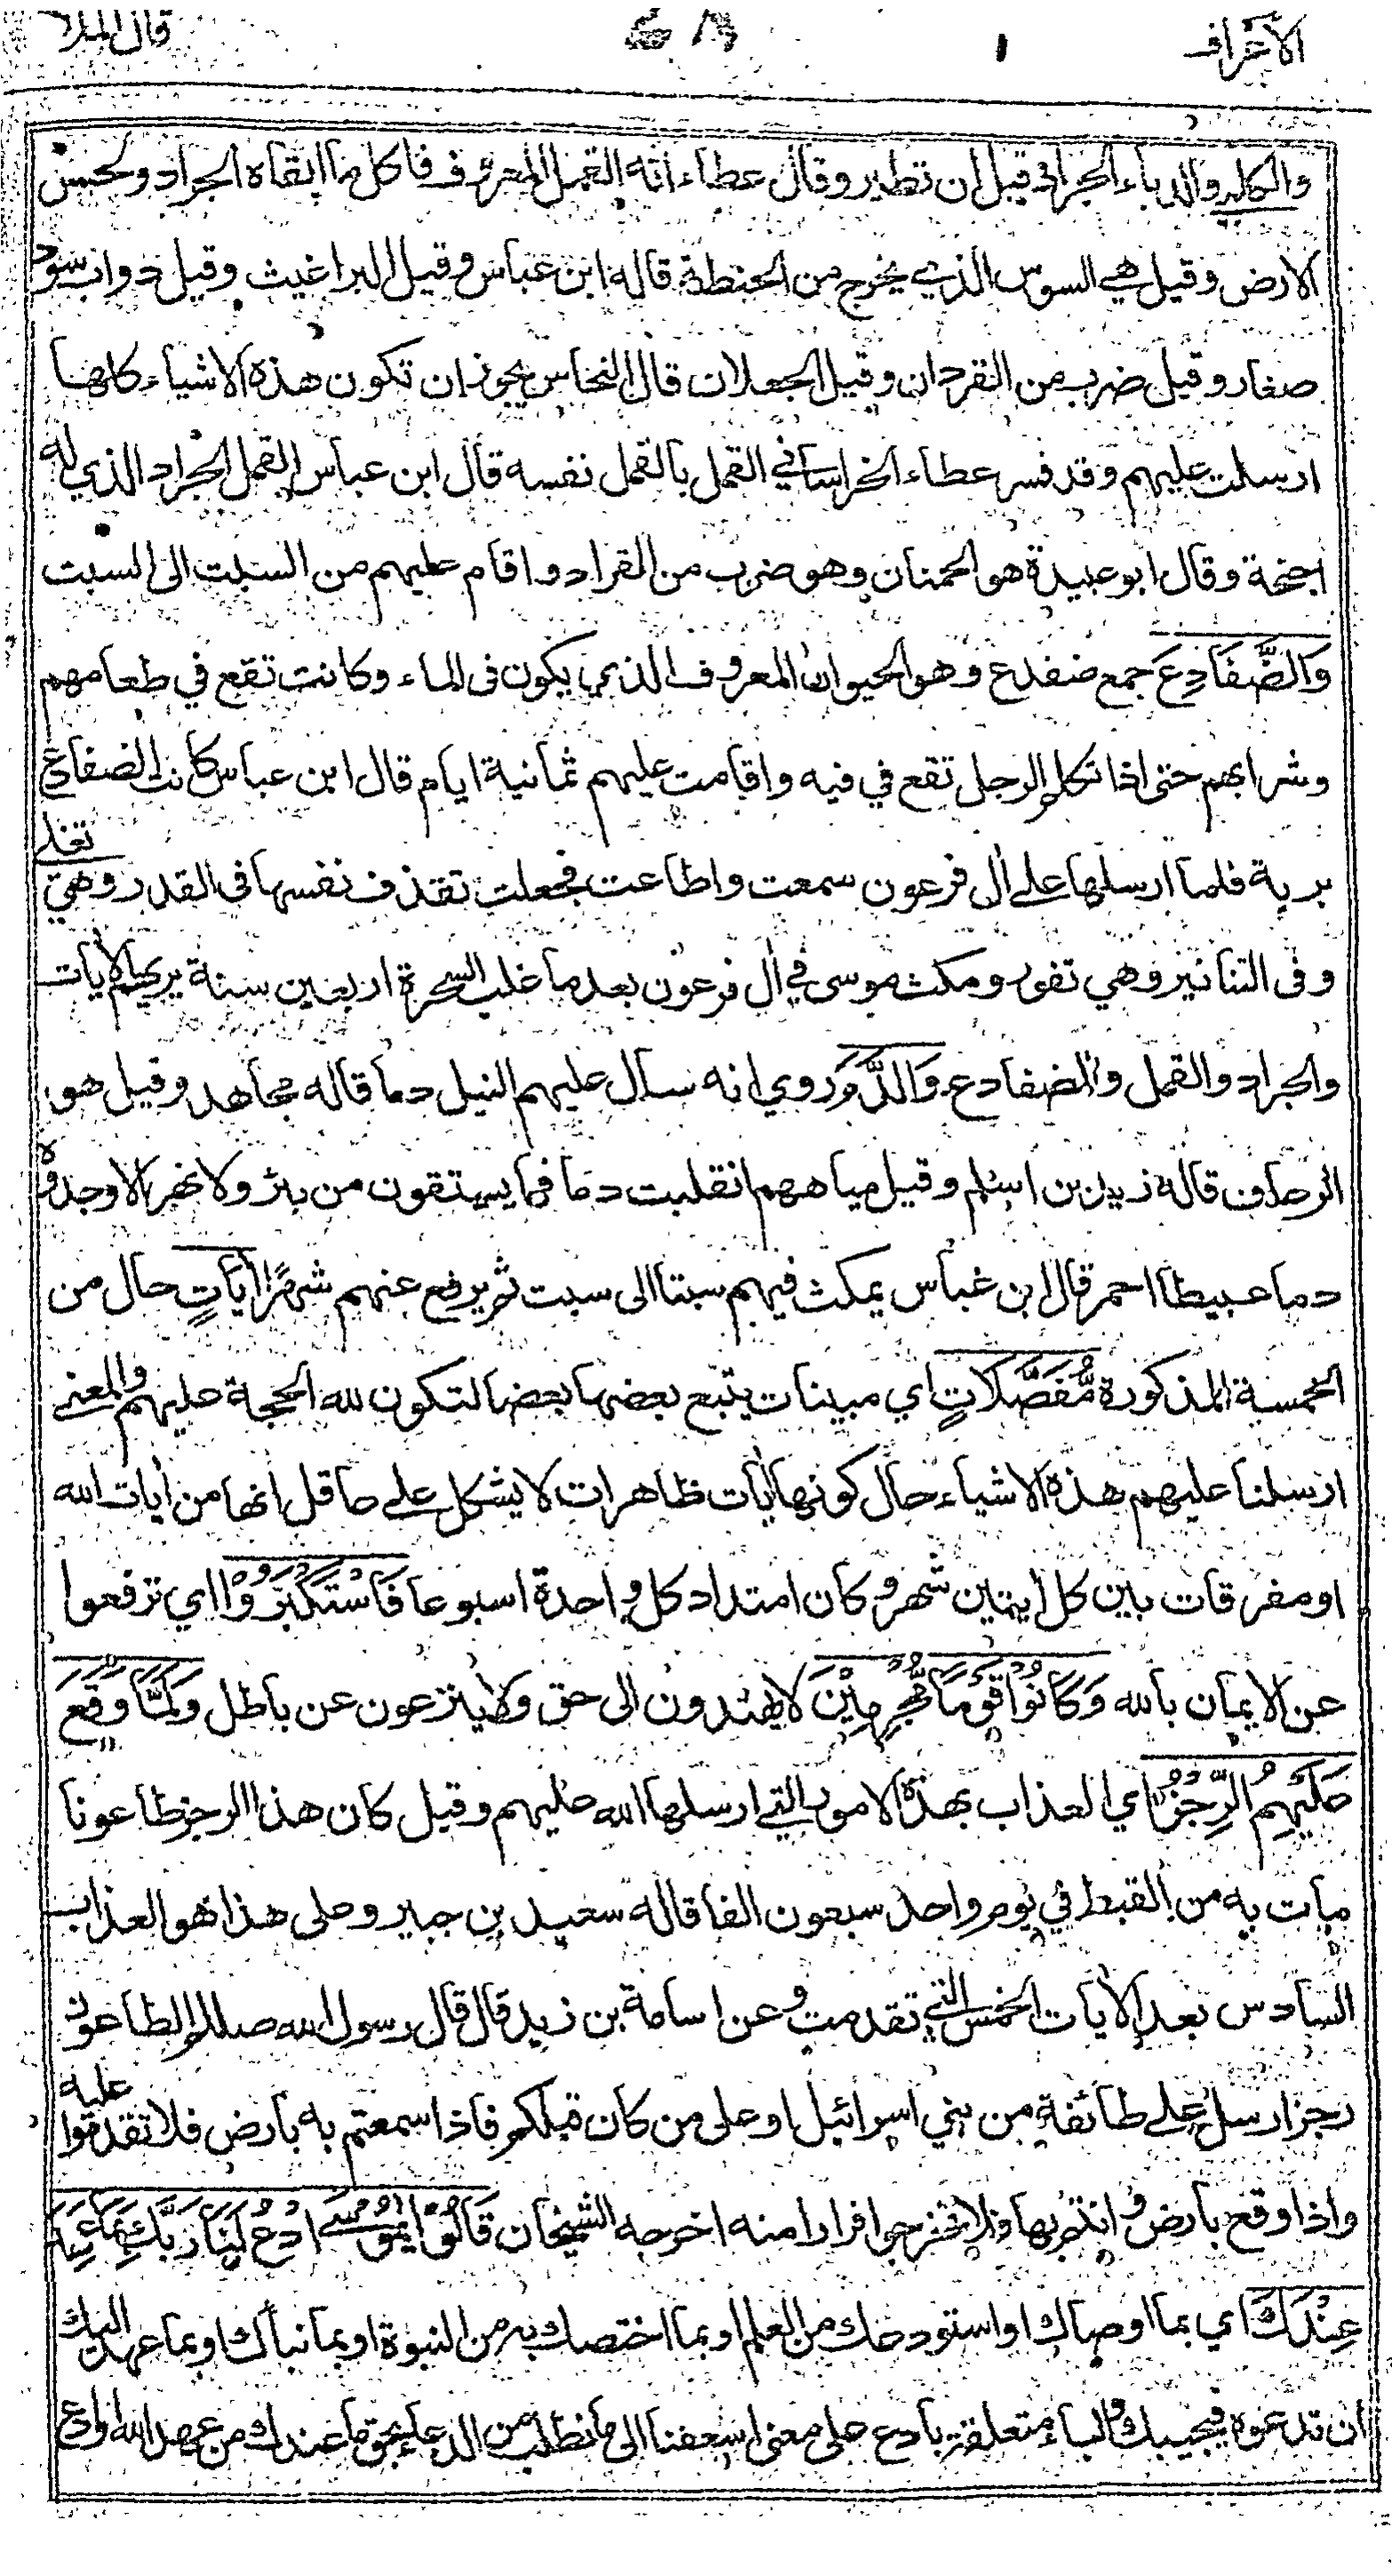 الأعراف ١ قال الملأ
والكلبي والدباء الجراد قبل ان تطير وقال عطاء انه القمل المعروف فاكل ما ابقاه الجراد ولحس
الارض وقيل هي السوس الذي يخرج من الحنطة قاله ابن عباس وقيل البراغيث وقيل دواب سود
صغار وقيل ضرب من القردان وقيل الجعلان قال النحاس يجوز ان تكون هذه الاشياء كلها
ارسلت عليهم وقد فسر عطاء الخراساني القمل بالقمل نفسه قال ابن عباس القمل الجراد الذي له
اجنحة وقال ابو عبيدة هو الحمنان وهو ضرب من القراد واقام عليهم من السبت الى السبت
وَالضَّفَادِعَ جمع ضفدع وهو الحيوان المعروف الذي يكون فى الماء وكانت تقع في طعامهم
وشرابهم حتى اذا تكلم الرجل تقع في فيه واقامت عليهم ثمانية ايام قال ابن عباس كانت الضفادع
برية فلما ارسلها على أل فرعون سمعت واطاعت فجعلت تقذف نفسها فى القدر وهي تغلي
وفى التنانير وهي تفور ومكث موسى في أل فرعون بعد ما غلب السحرة اربعين سنة يريهم الأيات
والجراد والقمل والضفادع وَالدَّمَ روي انه سال عليهم النيل دما قاله مجاهد وقيل هو
الرعاف قاله زيد بن اسلم وقيل مياههم انقلبت دما فما يستقون من بئر ولا نهر الا وجدوه
دما عبيطا احمر قال ابن عباس يمكث فيهم سبتا الى سبت ثم يرفع عنهم شهرًا أيَاتٍ حال من
الخمسة المذكورة مُّفَصَّلَاتٍ اي مبينات يتبع بعضها بعضا لتكون لله الحجة عليهم والمعنى
ارسلنا عليهم هذه الاشياء حال كونها أيات ظاهرات لا يشكل على عاقل انها من أيات الله
او مفرقات بين كل أيتين شهر وكان امتداد كل واحدة اسبوعا فَاسْتَكْبَرُوْا اي ترفعوا
عن الايمان بالله وَكَانُوْا قَوْمًا مُّجْرِمِيْنَ لا يهتدون الى حق ولا ينزعون عن باطل وَلَمَّا وَقَعَ
عَلَيْهِمُ الرِّجْزُ اي العذاب بهذه الامور التي ارسلها الله عليهم وقيل كان هذا الرجز طاعونا
مات به من القبط في يوم واحد سبعون الفا قاله سعيد بن جبير وعلى هذا هو العذاب
السادس بعد الأيات الخمس التي تقدمت وعن اسامة بن زيد قال قال رسول الله صلالم الطاعون
رجز ارسل على طائفة من بني اسرائيل او على من كان قبلكم فاذا سمعتم به بارض فلا تقدموا عليه
واذا وقع بارض وانتم بها فلا تخرجوا فرارا منه اخرجه الشيخان قَالُوْا يٰمُوْسَى ادْعُ لَنَا رَبَّكَ بِمَا عَهِدَ
عِنْدَكَ اي بما اوصاك او استودعك من العلم او بما اختصك به من النبوة او بما نباك او بما عهد اليك
ان تدعوه فيجيبك والباء متعلقة بادع على معنى اسعفنا الى ما نطلب من الدعاء بحق ما عندك من عهد الله او ادع